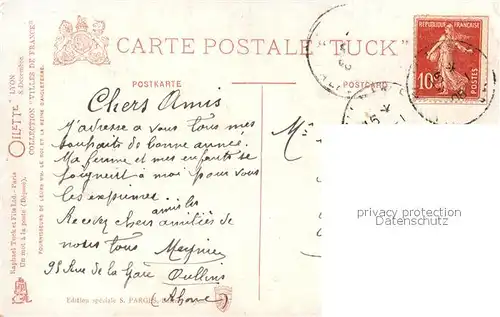 CARTE POSTALE "TUCK"
POSTKARTE
POSTCARD
RÉPUBLIQUE FRANÇAISE
10
POSTES
Chers Amis
J'adresse a vous tous mes
souhaits de bonne année.
Ma femme et mes enfants se
joignent à moi pour vous
les exprimer.
amis les
Recevez chers amitiés de
nous tous
95 Rue de la Gare Oullins
(Rhône)
Edition spéciale S. FARGES,
OILETTE" LYON
8 Décembre
COLLECTION "VILLES DE FRANCE"
FOURNISSEURS DE LEURS MM. LE ROI ET LA REINE D'ANGLETERRE.
Raphael Tuck et Fils Ltd. - Paris
Un mot à la poste (Déposé).
privacy protection
Datenschutz